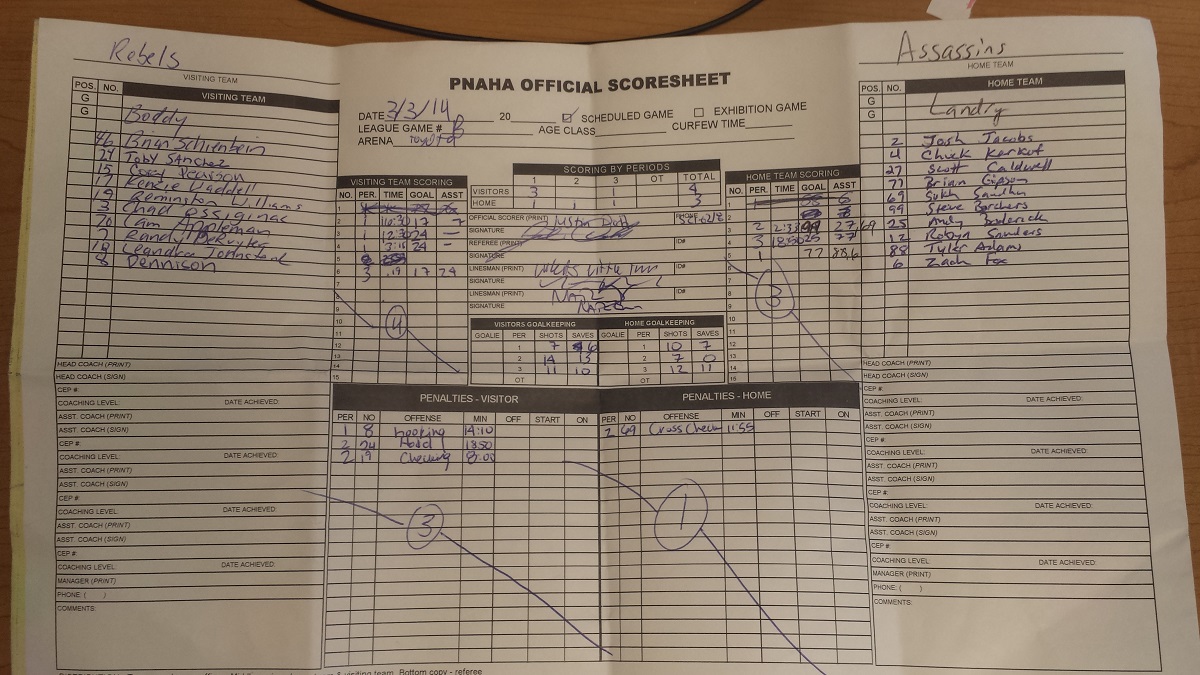 Rebels
Assassins
VISITING TEAM
HOME TEAM
PNAHA OFFICIAL SCORESHEET
DATE 3/3/14 20 SCHEDULED GAME EXHIBITION GAME
LEAGUE GAME # B AGE CLASS CURFEW TIME
ARENA
POS. NO. VISITING TEAM
G
G Boddy
46 Brian
24 Toby Sanchez
15 Cory Pearson
17 Kenzie Waddell
19 Remington Williams
3 Chad
70 Cam Appleman
7 Randy DeKuyter
18 Leandra
8 Dennison
POS. NO. HOME TEAM
G
G Landry
2 Josh Jacobs
4 Chuck
27 Scott Caldwell
77 Brian Gipson
69 Sukh Sandhu
99 Steve Borchers
25 Andy Broderick
12 Robyn Sanders
88 Tyler Adams
6 Zach Fox
VISITING TEAM SCORING
NO. PER. TIME GOAL ASST
1
2 1 10:30 17 7
3 1 12:30 24 –
4 1 3:16 24 –
5
6 3 .19 17 24
7
8
9
10
11
12
13
14
15
4
SCORING BY PERIODS
1 2 3 OT TOTAL
VISITORS 3 1 4
HOME 1 1 1 3
OFFICIAL SCORER (PRINT) PHONE
SIGNATURE
REFEREE (PRINT) ID#
SIGNATURE
LINESMAN (PRINT) ID#
SIGNATURE
LINESMAN (PRINT) ID#
SIGNATURE
HOME TEAM SCORING
NO. PER. TIME GOAL ASST
1
2
3 2 2:33 99 27,69
4 3 18:50 25 77
5 1 77 88,6
6
7
8
9
10
11
12
13
14
15
3
VISITORS GOALKEEPING
GOALIE PER SHOTS SAVES
1 7 6
2 14 13
3 11 10
OT
HOME GOALKEEPING
GOALIE PER SHOTS SAVES
1 10 7
2 7 0
3 12 11
OT
PENALTIES - VISITOR
PER NO OFFENSE MIN OFF START ON
1 8 hooking 14:10
2 24 Hold 13:50
2 19 Checking 8:00
3
PENALTIES - HOME
PER NO OFFENSE MIN OFF START ON
2 69 Cross Check 11:55
1
HEAD COACH (PRINT)
HEAD COACH (SIGN)
CEP #:
COACHING LEVEL: DATE ACHIEVED:
ASST. COACH (PRINT)
ASST. COACH (SIGN)
CEP #:
COACHING LEVEL: DATE ACHIEVED:
ASST. COACH (PRINT)
ASST. COACH (SIGN)
CEP #:
COACHING LEVEL: DATE ACHIEVED:
ASST. COACH (PRINT)
ASST. COACH (SIGN)
CEP #:
COACHING LEVEL: DATE ACHIEVED:
MANAGER (PRINT)
PHONE: ( )
COMMENTS:
HEAD COACH (PRINT)
HEAD COACH (SIGN)
CEP #:
COACHING LEVEL: DATE ACHIEVED:
ASST. COACH (PRINT)
ASST. COACH (SIGN)
CEP #:
COACHING LEVEL: DATE ACHIEVED:
ASST. COACH (PRINT)
ASST. COACH (SIGN)
CEP #:
COACHING LEVEL: DATE ACHIEVED:
ASST. COACH (PRINT)
ASST. COACH (SIGN)
CEP #:
COACHING LEVEL: DATE ACHIEVED:
MANAGER (PRINT)
PHONE: ( )
COMMENTS:
& visiting team. Bottom copy - referee